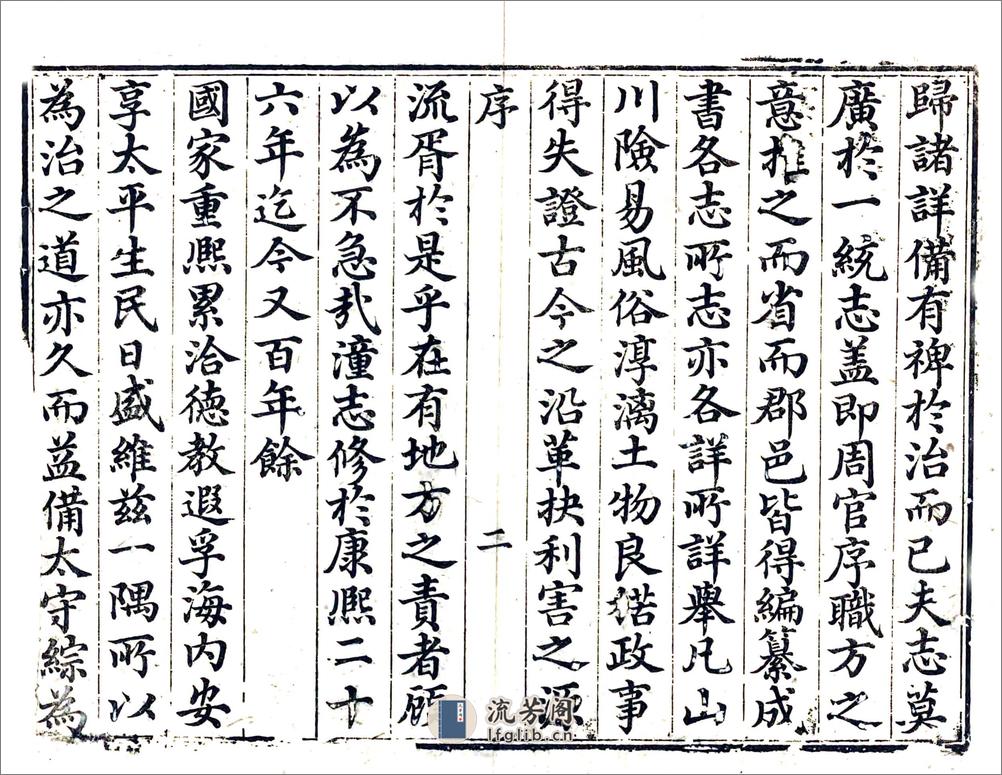 歸諸詳備有裨於治而已夫志莫
廣於一統志盖即周官序職方之
意推之而省而郡邑皆得編纂成
書各志所志亦各詳所詳舉凡山
川險易風俗淳漓土物良楛政事
得失證古今之沿革抉利害之源
序
二
流胥於是乎在有地方之責者顧
以為不急㢤潼志修於康熙二十
六年迄今又百年餘
國家重熙累洽德教遐孚海內安
享太平生民日盛維茲一隅所以
為治之道亦久而益備太守綜為
流芳阁
lfglib.cn